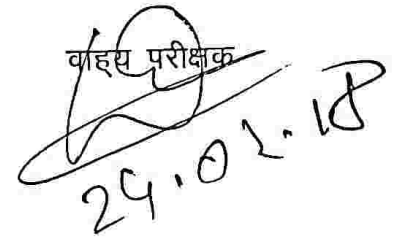 वाहय परीक्षक
24.02.18